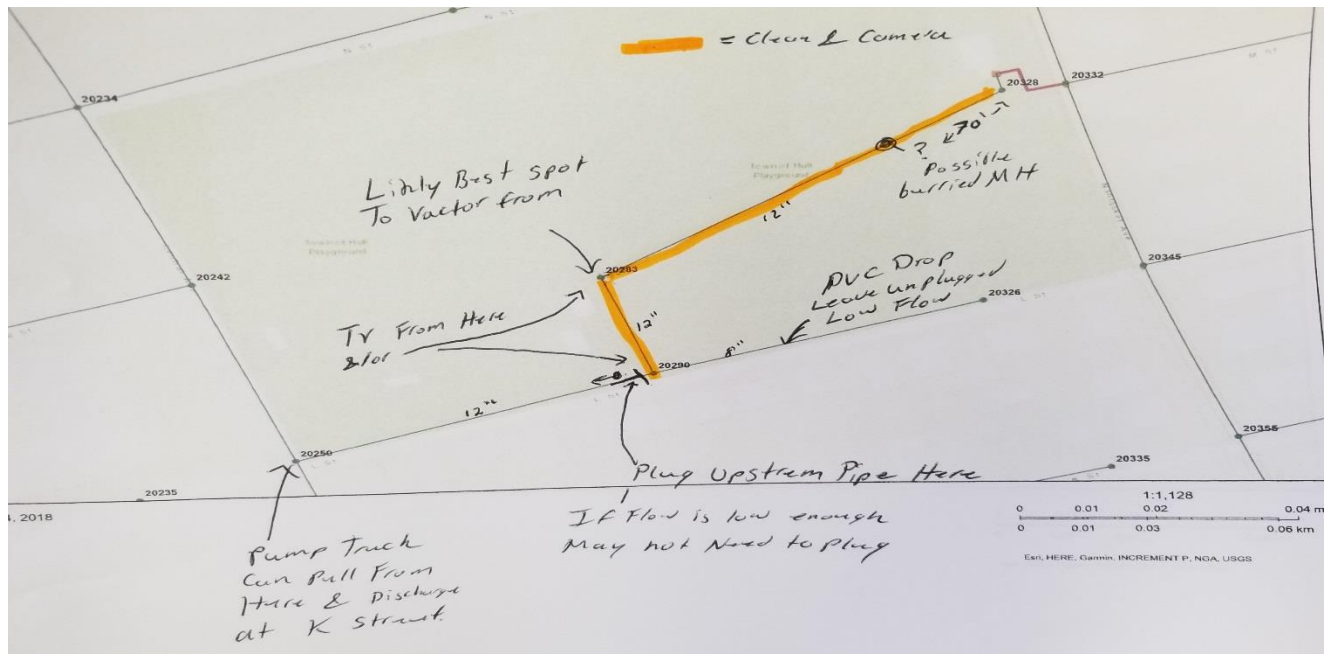 N St
N St
= Clean & Camera
20234
20328
20332
M St
70'
?
Possible
burried MH
Town of Hull
Playground
12"
Likly Best spot
To Vactor from
Town of Hull
Playground
20242
20283
Nantasket Ave
20345
PVC Drop
Leave unplugged
Low Flow
20326
L St
Tv From Here
&/or
12"
8"
20290
L St
12"
20250
L St
20355
20335
Plug Upstrem Pipe Here
If Flow is low enough
May not Need to plug
20235
4, 2018
Pump Truck
Can Pull From
Here & Discharge
at K Street.
1:1,128
0 0.01 0.02 0.04 m
0 0.01 0.03 0.06 km
Esri, HERE, Garmin, INCREMENT P, NGA, USGS